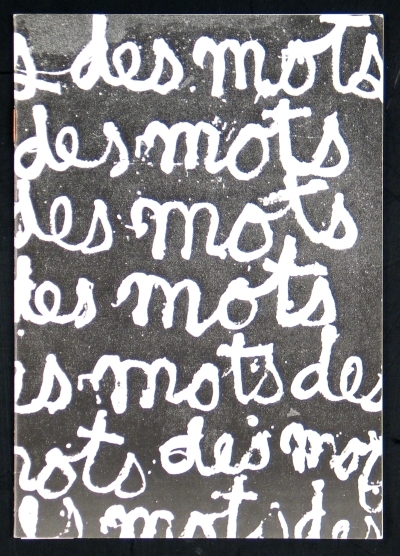 s des mots
des mots
des mots
des mots
s mots des
ots des mot
es mots des